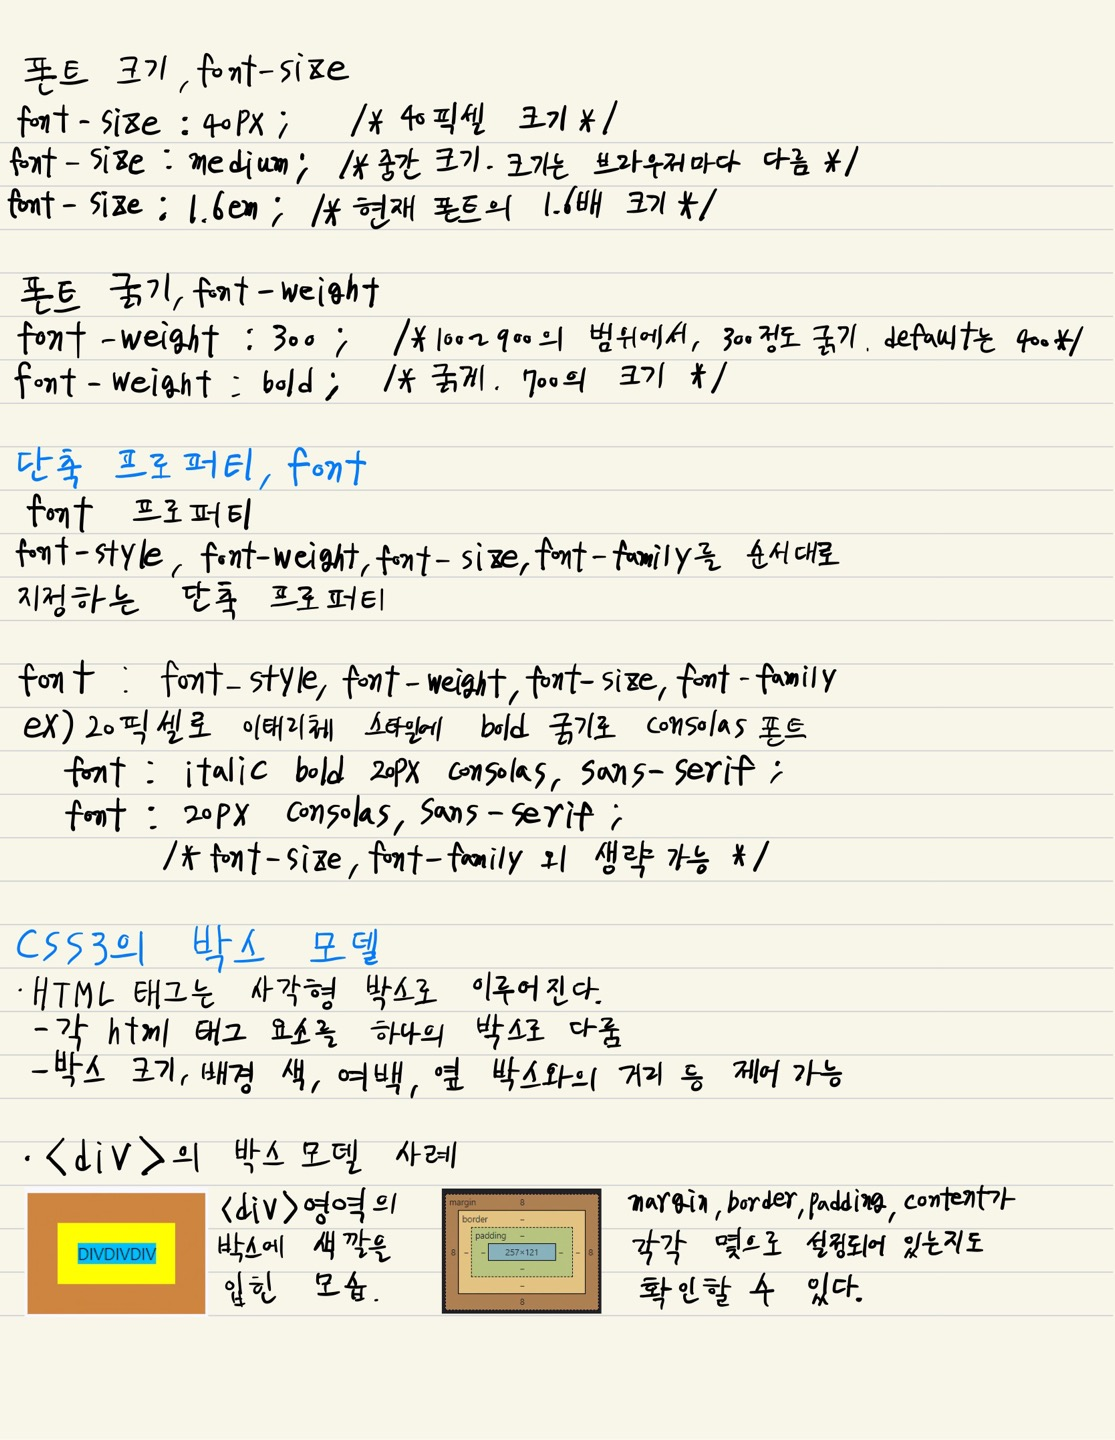 폰트 크기, font-size
font-size : 40px; /* 40픽셀 크기 */
font-size : medium; /* 중간 크기. 크기는 브라우저마다 다름 */
font-size : 1.6em; /* 현재 폰트의 1.6배 크기 */
폰트 굵기, font-weight
font-weight : 300; /* 100~900의 범위에서, 300정도 굵기. default는 400 */
font-weight : bold; /* 굵게. 700의 크기 */
단축 프로퍼티, font
font 프로퍼티
font-style, font-weight, font-size, font-family를 순서대로
지정하는 단축 프로퍼티
font : font-style, font-weight, font-size, font-family
ex) 20픽셀로 이태리체 스타일에 bold 굵기로 consolas 폰트
font : italic bold 20px consolas, sans-serif;
font : 20px consolas, sans-serif;
/* font-size, font-family 외 생략 가능 */
CSS3의 박스 모델
· HTML 태그는 사각형 박스로 이루어진다.
- 각 html 태그 요소를 하나의 박스로 다룸
- 박스 크기, 배경 색, 여백, 옆 박스와의 거리 등 제어 가능
· <div>의 박스 모델 사례
DIVDIVDIV
<div>영역의
박스에 색깔을
입힌 모습.
margin 8
border -
padding -
8 - - 257×121 - - 8
-
-
8
margin, border, padding, content가
각각 몇으로 설정되어 있는지도
확인할 수 있다.